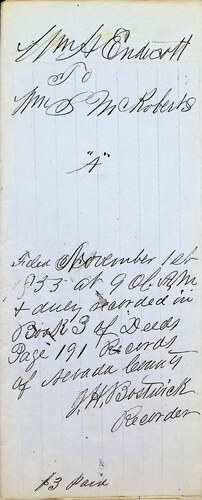 Wm A Endicott
To
Wm S McRoberts
"A"
Filed November 1st
1833 at 9 Oc. A.M
& duly recorded in
Book 3 of Deeds
Page 191 Records
of Nevada County
J. H. Bostwick
Recorder
$3 Paid